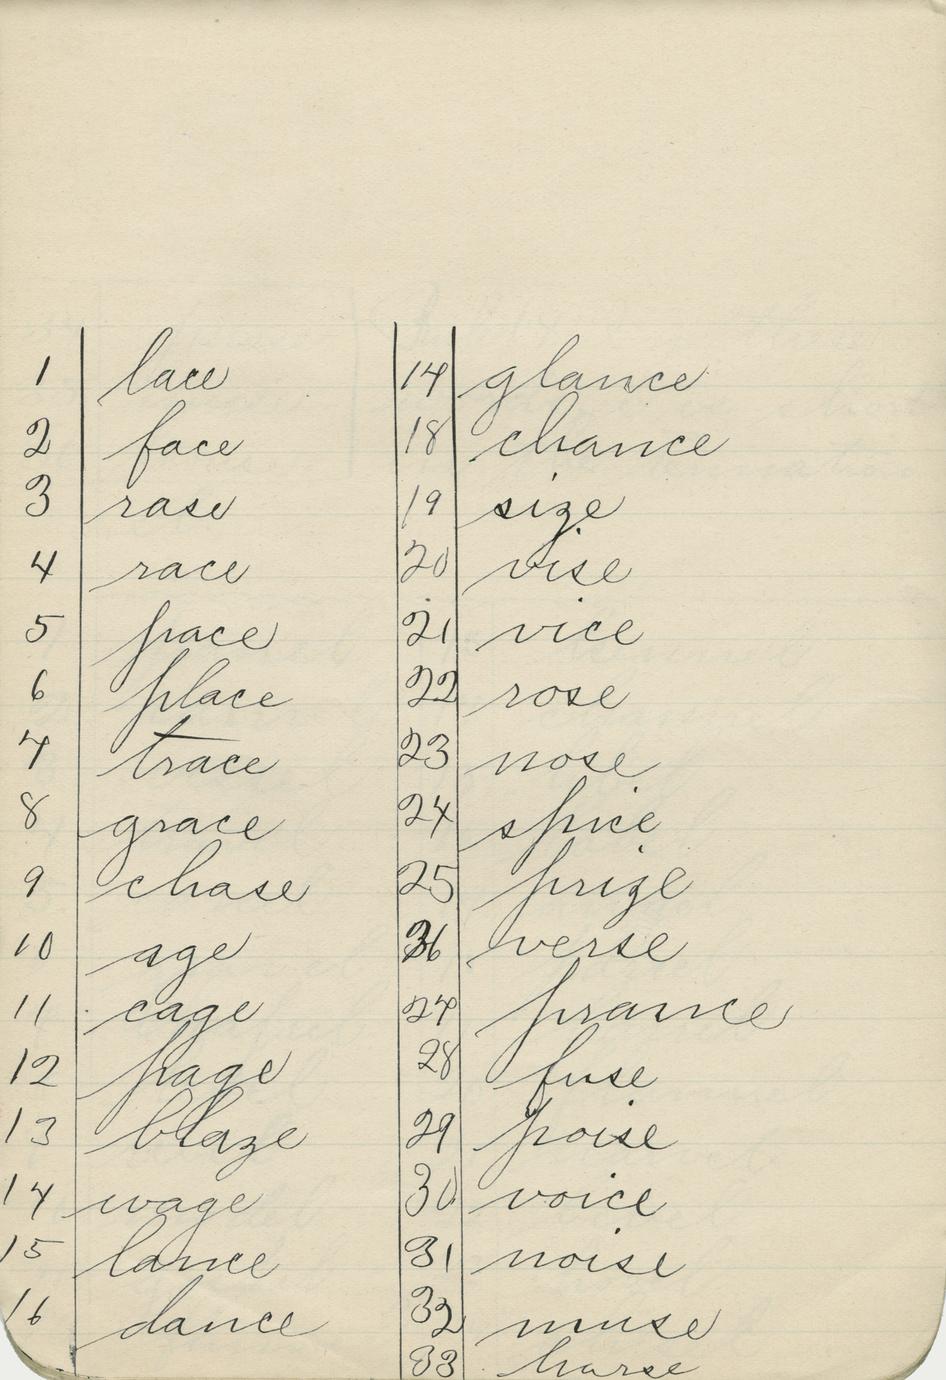 1 lace
2 face
3 rase
4 race
5 pace
6 place
7 trace
8 grace
9 chase
10 age
11 cage
12 page
13 blaze
14 wage
15 lance
16 dance
17 glance
18 chance
19 size
20 vise
21 vice
22 rose
23 nose
24 spice
25 prize
26 verse
27 prance
28 fuse
29 poise
30 voice
31 noise
32 muse
33